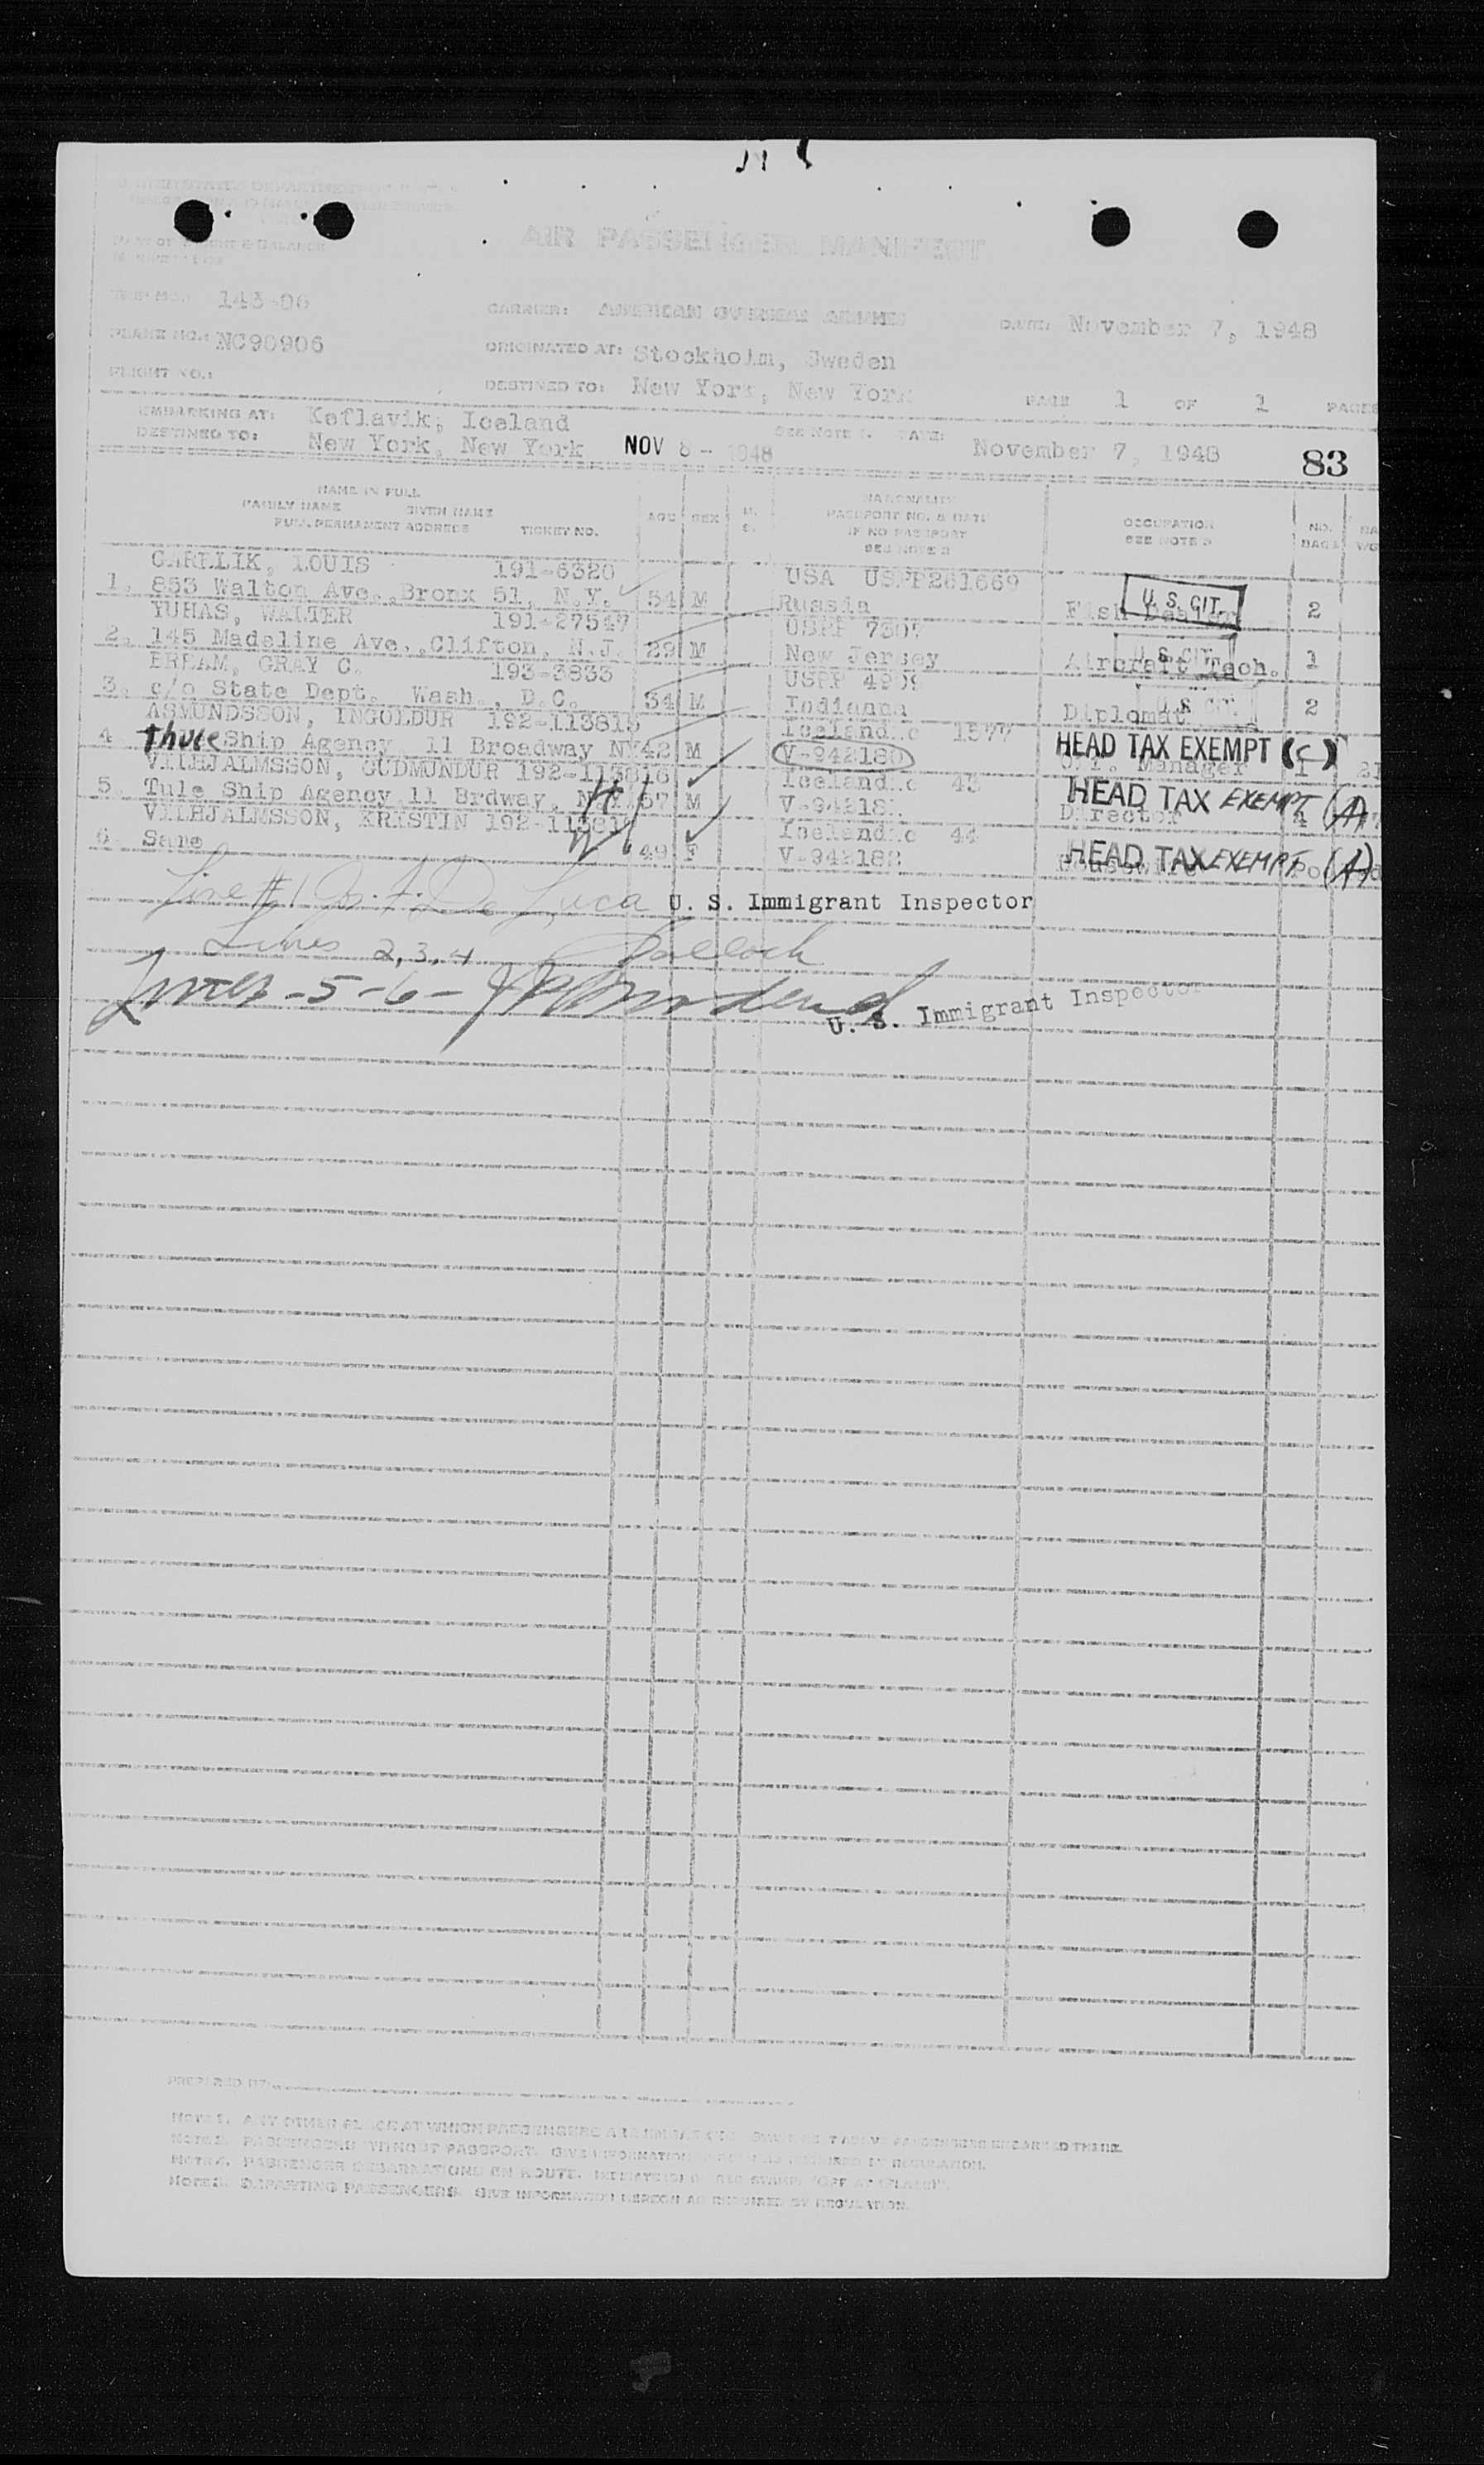 AIR PASSENGER MANIFEST
TRIP NO.: 143-06
CARRIER: AMERICAN OVERSEAS AIRLINES
DATE: November 7, 1948
PLANE NO.: NC90906
ORIGINATED AT: Stockholm, Sweden
FLIGHT NO.:
DESTINED TO: New York, New York
PAGE 1 OF 1 PAGES
EMBARKING AT: Keflavik, Iceland
DESTINED TO: New York, New York NOV 8 - 1948 SEE NOTE 1. DATE: November 7, 1948 83
NAME IN FULL
FAMILY NAME GIVEN NAME
FULL PERMANENT ADDRESS TICKET NO.
AGE SEX M. S.
NATIONALITY
PASSPORT NO. & DATE
IF NO PASSPORT
SEE NOTE 2
OCCUPATION
SEE NOTE 3
NO. BAGS
GARELIK, LOUIS 191-6320 USA USPP261669
1. 853 Walton Ave., Bronx 51, N.Y. 54 M Russia Fish Dealer U. S. CIT. 2
YUHAS, WALTER 191-27547 USPP 7307
2. 145 Madeline Ave., Clifton, N.J. 29 M New Jersey Aircraft Tech. U. S. CIT. 1
BREAM, GRAY C. 193-3833 USPP 4909
3. c/o State Dept. Wash., D.C. 34 M Indiana Diplomat U. S. CIT. 2
ASMUNDSSON, INGOLDUR 192-113815 Icelandic 1577
4 Thule Ship Agency 11 Broadway NY 42 M V-942180 HEAD TAX EXEMPT (C) Manager 1 21
VILHJALMSSON, GUDMUNDUR 192-113816 Icelandic 43
5. Tule Ship Agency 11 Brdway, N.Y. 57 M V-94218 HEAD TAX EXEMPT (A) Director 4
VILHJALMSSON, KRISTIN 192-11381 Icelandic 44
6. Same 49 F V-942182 HEAD TAX EXEMPT (A) Housewife Pooled
Line #1 De Luca U. S. Immigrant Inspector
Lines 2, 3, 4
Lines - 5 - 6 -
U. S. Immigrant Inspector
PREPARED BY:
NOTE 1. ANY OTHER PLACE AT WHICH PASSENGERS ARE
NOTE 2. PASSENGERS WITHOUT PASSPORT. GIVE INFORMATION AS REQUIRED BY REGULATION.
PASSENGER DEBARKATIONS EN ROUTE. "OFF AT (PLACE)".
DEPARTING PASSENGERS. GIVE INFORMATION HEREON AS REQUIRED BY REGULATION.